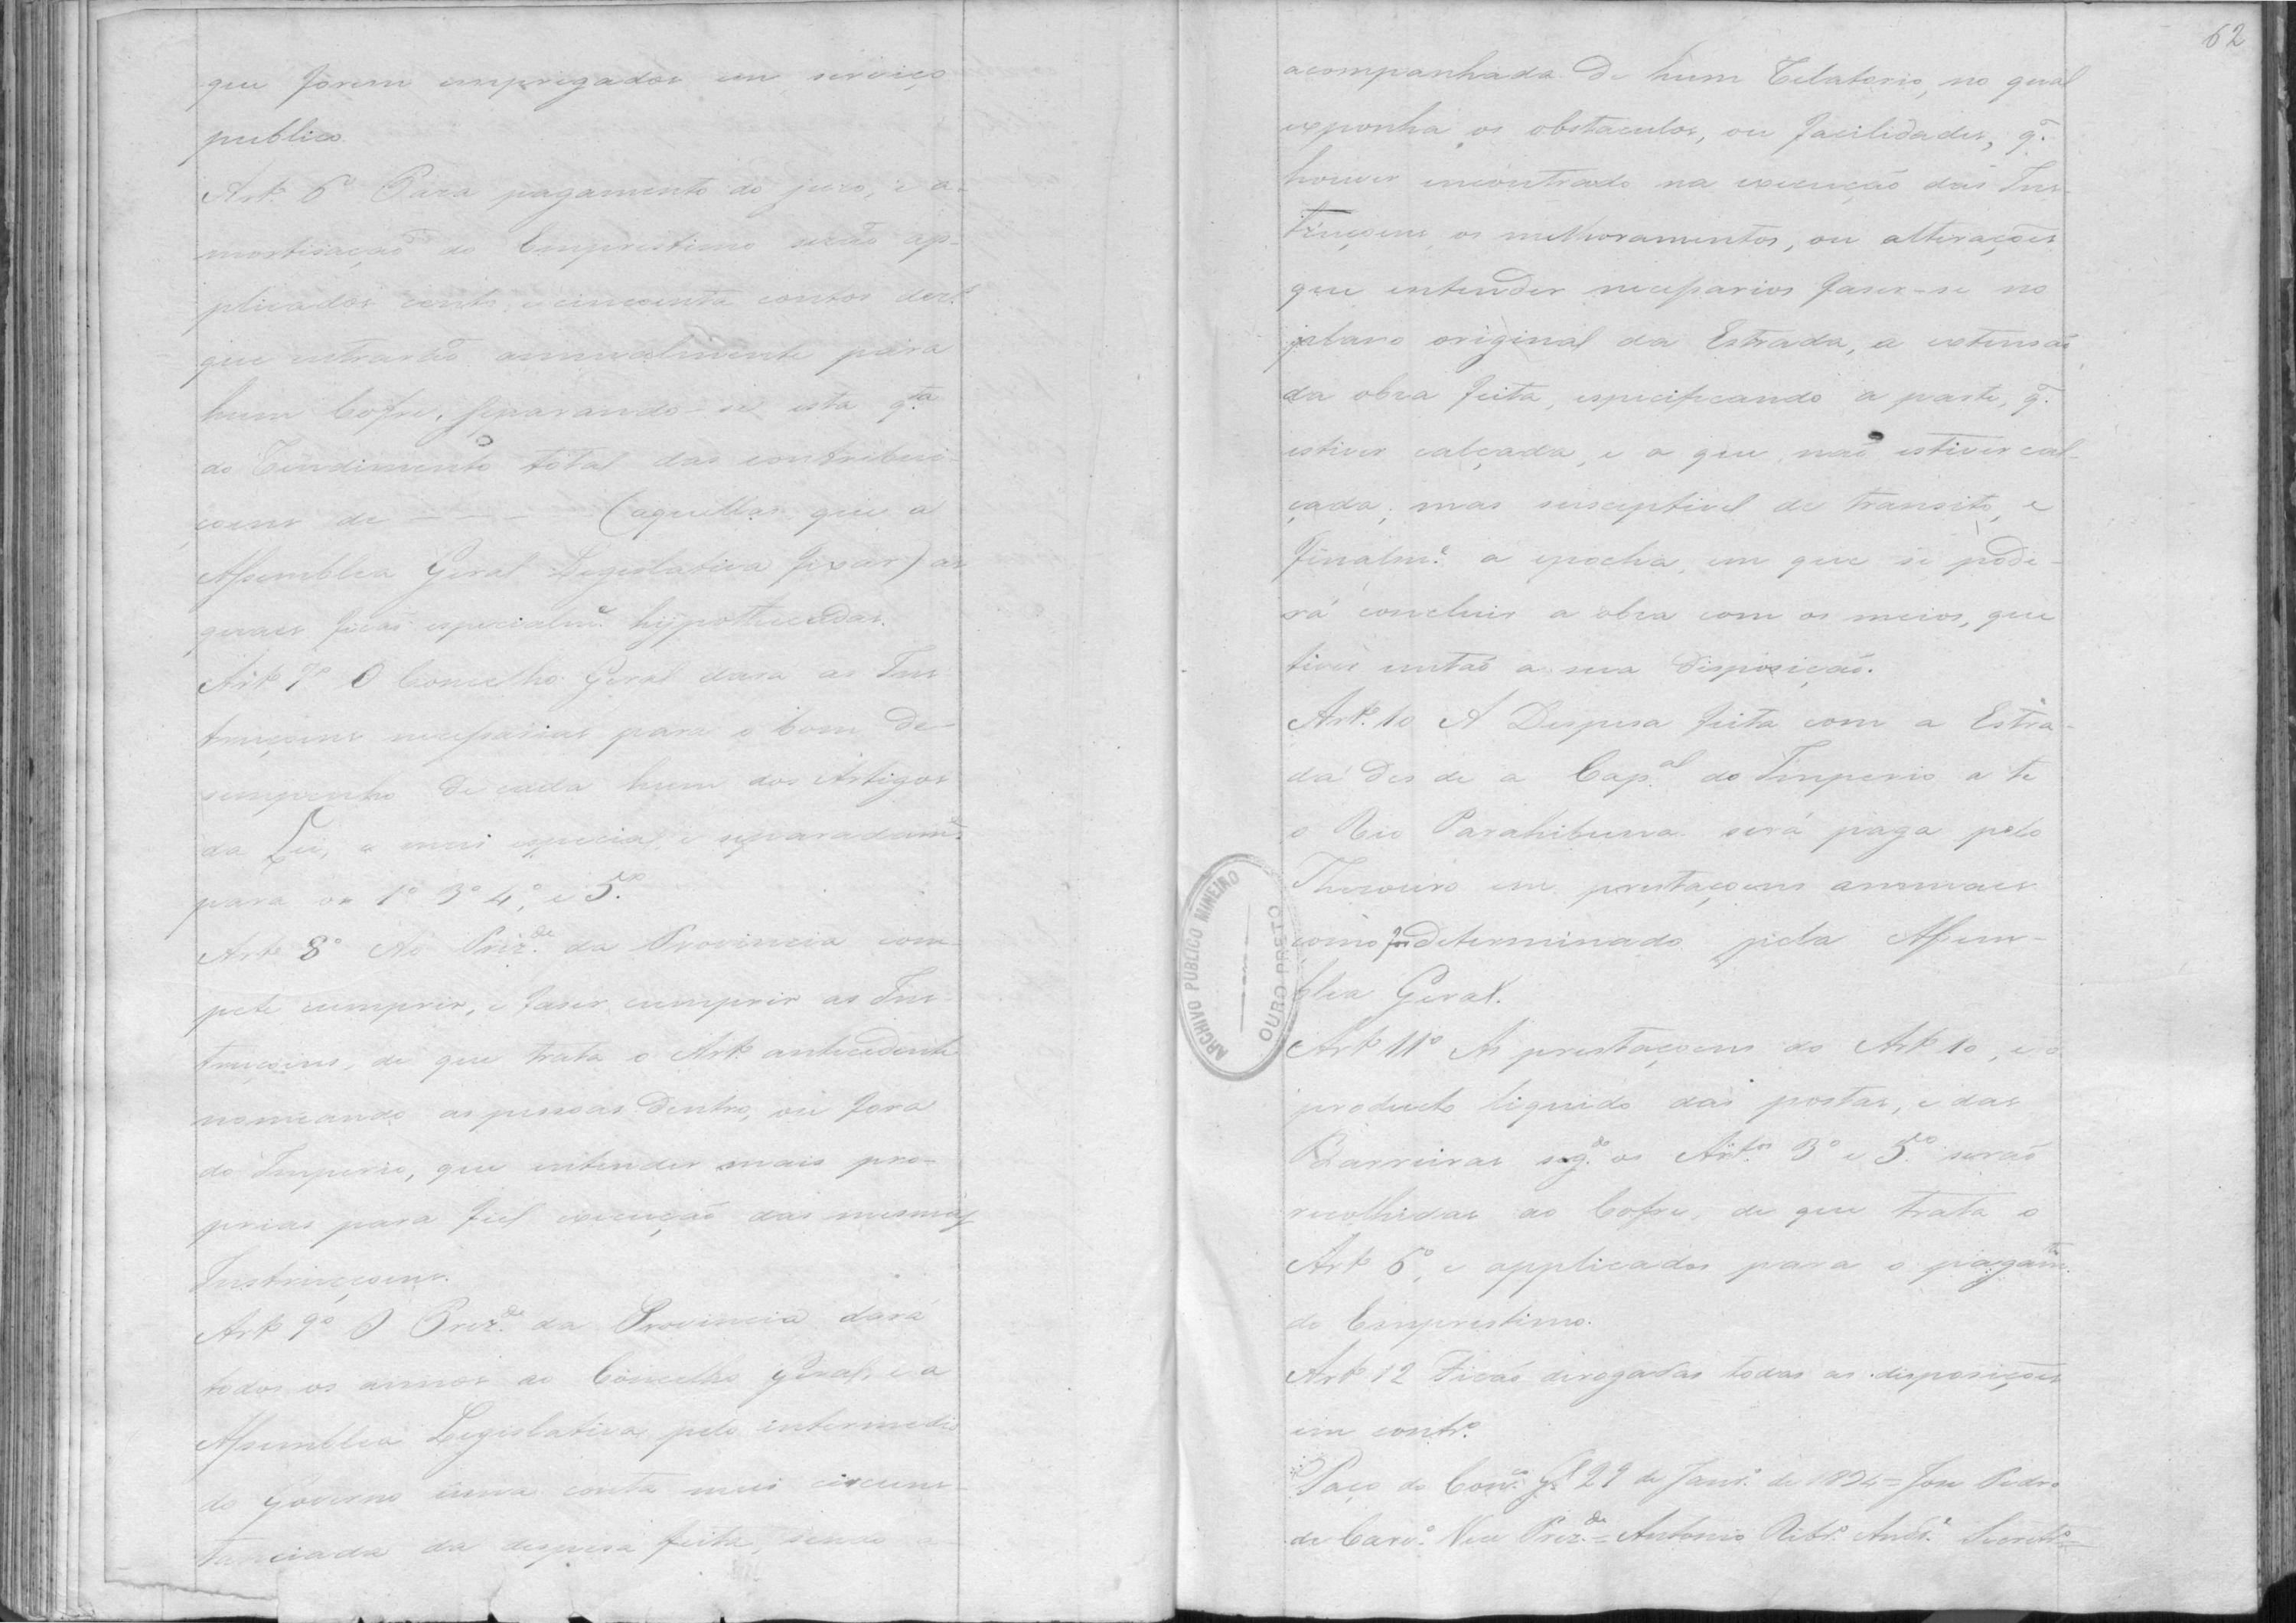 que forem empregados em serviço
publico.
Art.º 6º Para pagamento do juro, e a-
mortisação do Emprestimo serão ap-
plicados cento e cincoenta contos de r.s
que entrarão annualmente para
hum Cofre, separando-se esta q.ta
do Rendimento total das contribui-
çoens de - - - (aquellas que a
Assemblea Geral Legislativa fixar) as
geraes ficão especialm.e hypothecadas.
Art.º 7º O Concelho Geral dara as Ins-
trucçoens necessarias para o bom de-
sempenho de cada hum dos Artigos
da Lei, e mui especial e separadam.e
para os 1º 3º 4º, e 5.º
Art.º 8º Ao Prez.de da Provincia com-
pete cumprir, e faser cumprir as Ins-
trucçoens, de que trata o Art.º antecedente
nomeando as pessoas dentro, ou fora
do Imperio, que entender mais pro-
prias para fiel execução das mesmas
Instrucçoens.
Art.º 9º O Prez.de da Provincia dará
todos os annos ao Concelho Geral, e a
Assemblea Legislativa pelo intermedio
do Governo uma conta mui circuns-
tanciada da despesa feita, sendo a-
62
acompanhada de hum Relatorio, no qual
exponha os obstaculos, ou facilidades, q.
houver encontrado na execução das Ins-
trucçoens, os melhoramentos, ou alterações
que entender necessarios faser-se no
plano original da Estrada, a extensão
da obra feita, especificando a parte, q.
estiver calçada, e a que não estiver cal-
çada, mas susceptivel de transito, e
finalm.e a epocha, em que se pode-
rá concluir a obra com os meios, que
tiver então a sua disposição.
Art.º 10 A Despesa feita com a Estra-
da des de a Cap.al do Imperio a te
o Rio Parahibuna será paga pelo
Thesouro em prestaçoens annuaes
como for determinado pela Assem-
blea Geral.
Art.º 11º As prestaçoens do Art.º 10, e o
producto liquido das postas, e das
Barreiras seg.do os Art.os 3º e 5.º serão
recolhidas ao Cofre, de que trata o
Art.º 6º, e applicados para o pagam.to
do Emprestimo.
Art.º 12 Ficão derogadas todas as disposições
em contr.º
Paço do Con.co G.l 29 de Janr.º de 1834 = Jose Pedro
de Carv.º Vice Prez.de = Antonio Ribr.º Andr.e Secretr.º =
ARCHIVO PUBLICO MINEIRO
OURO PRETO